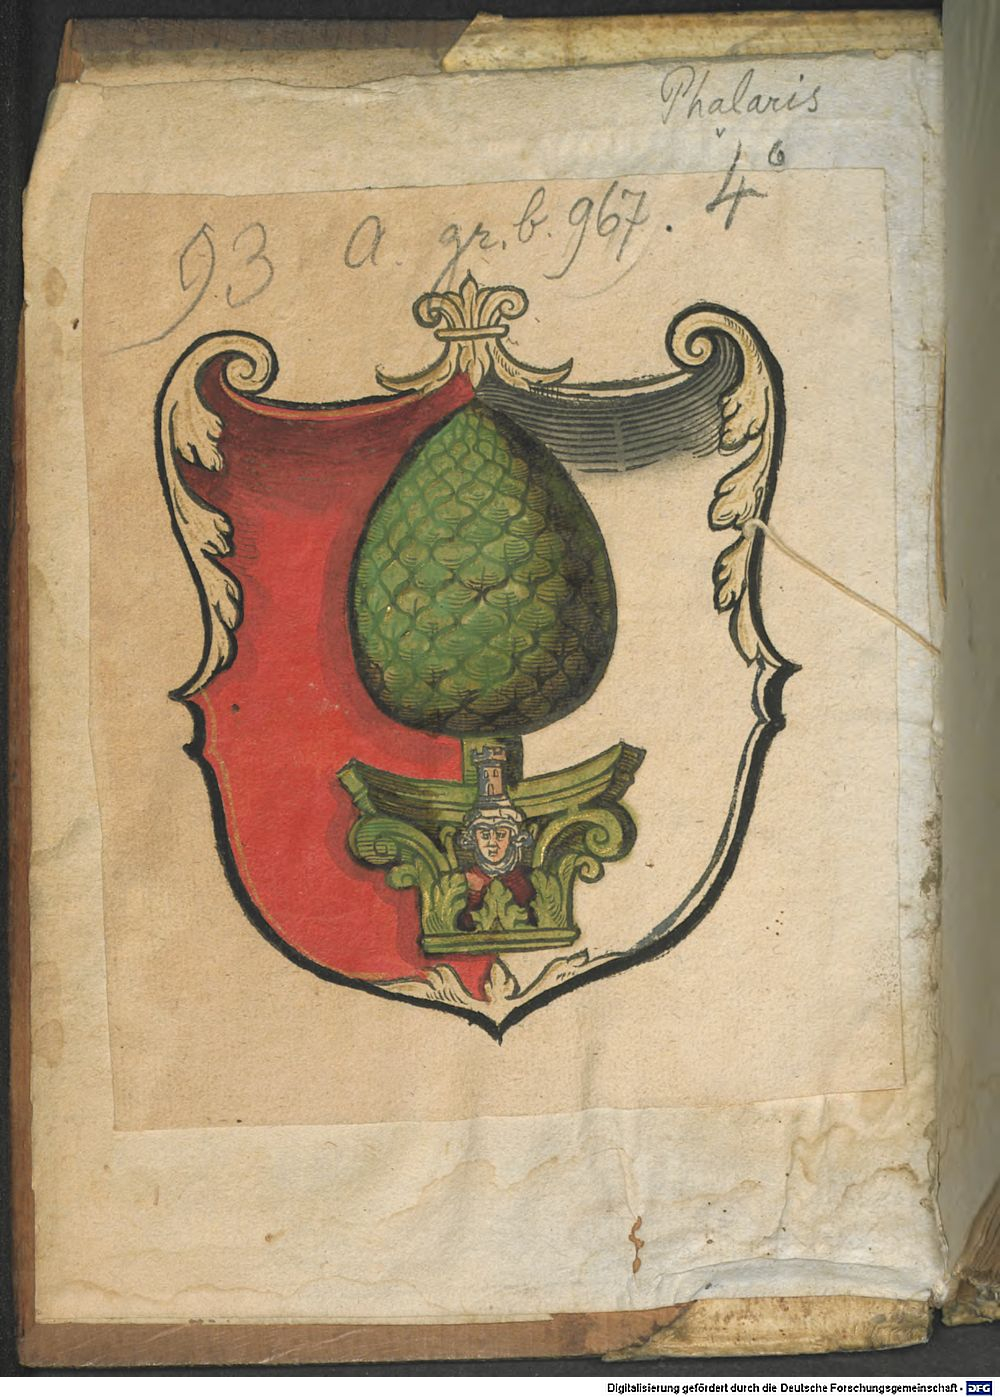 Phalaris
4°
93 A. gr. b. 967.
Digitalisierung gefördert durch die Deutsche Forschungsgemeinschaft - DFG